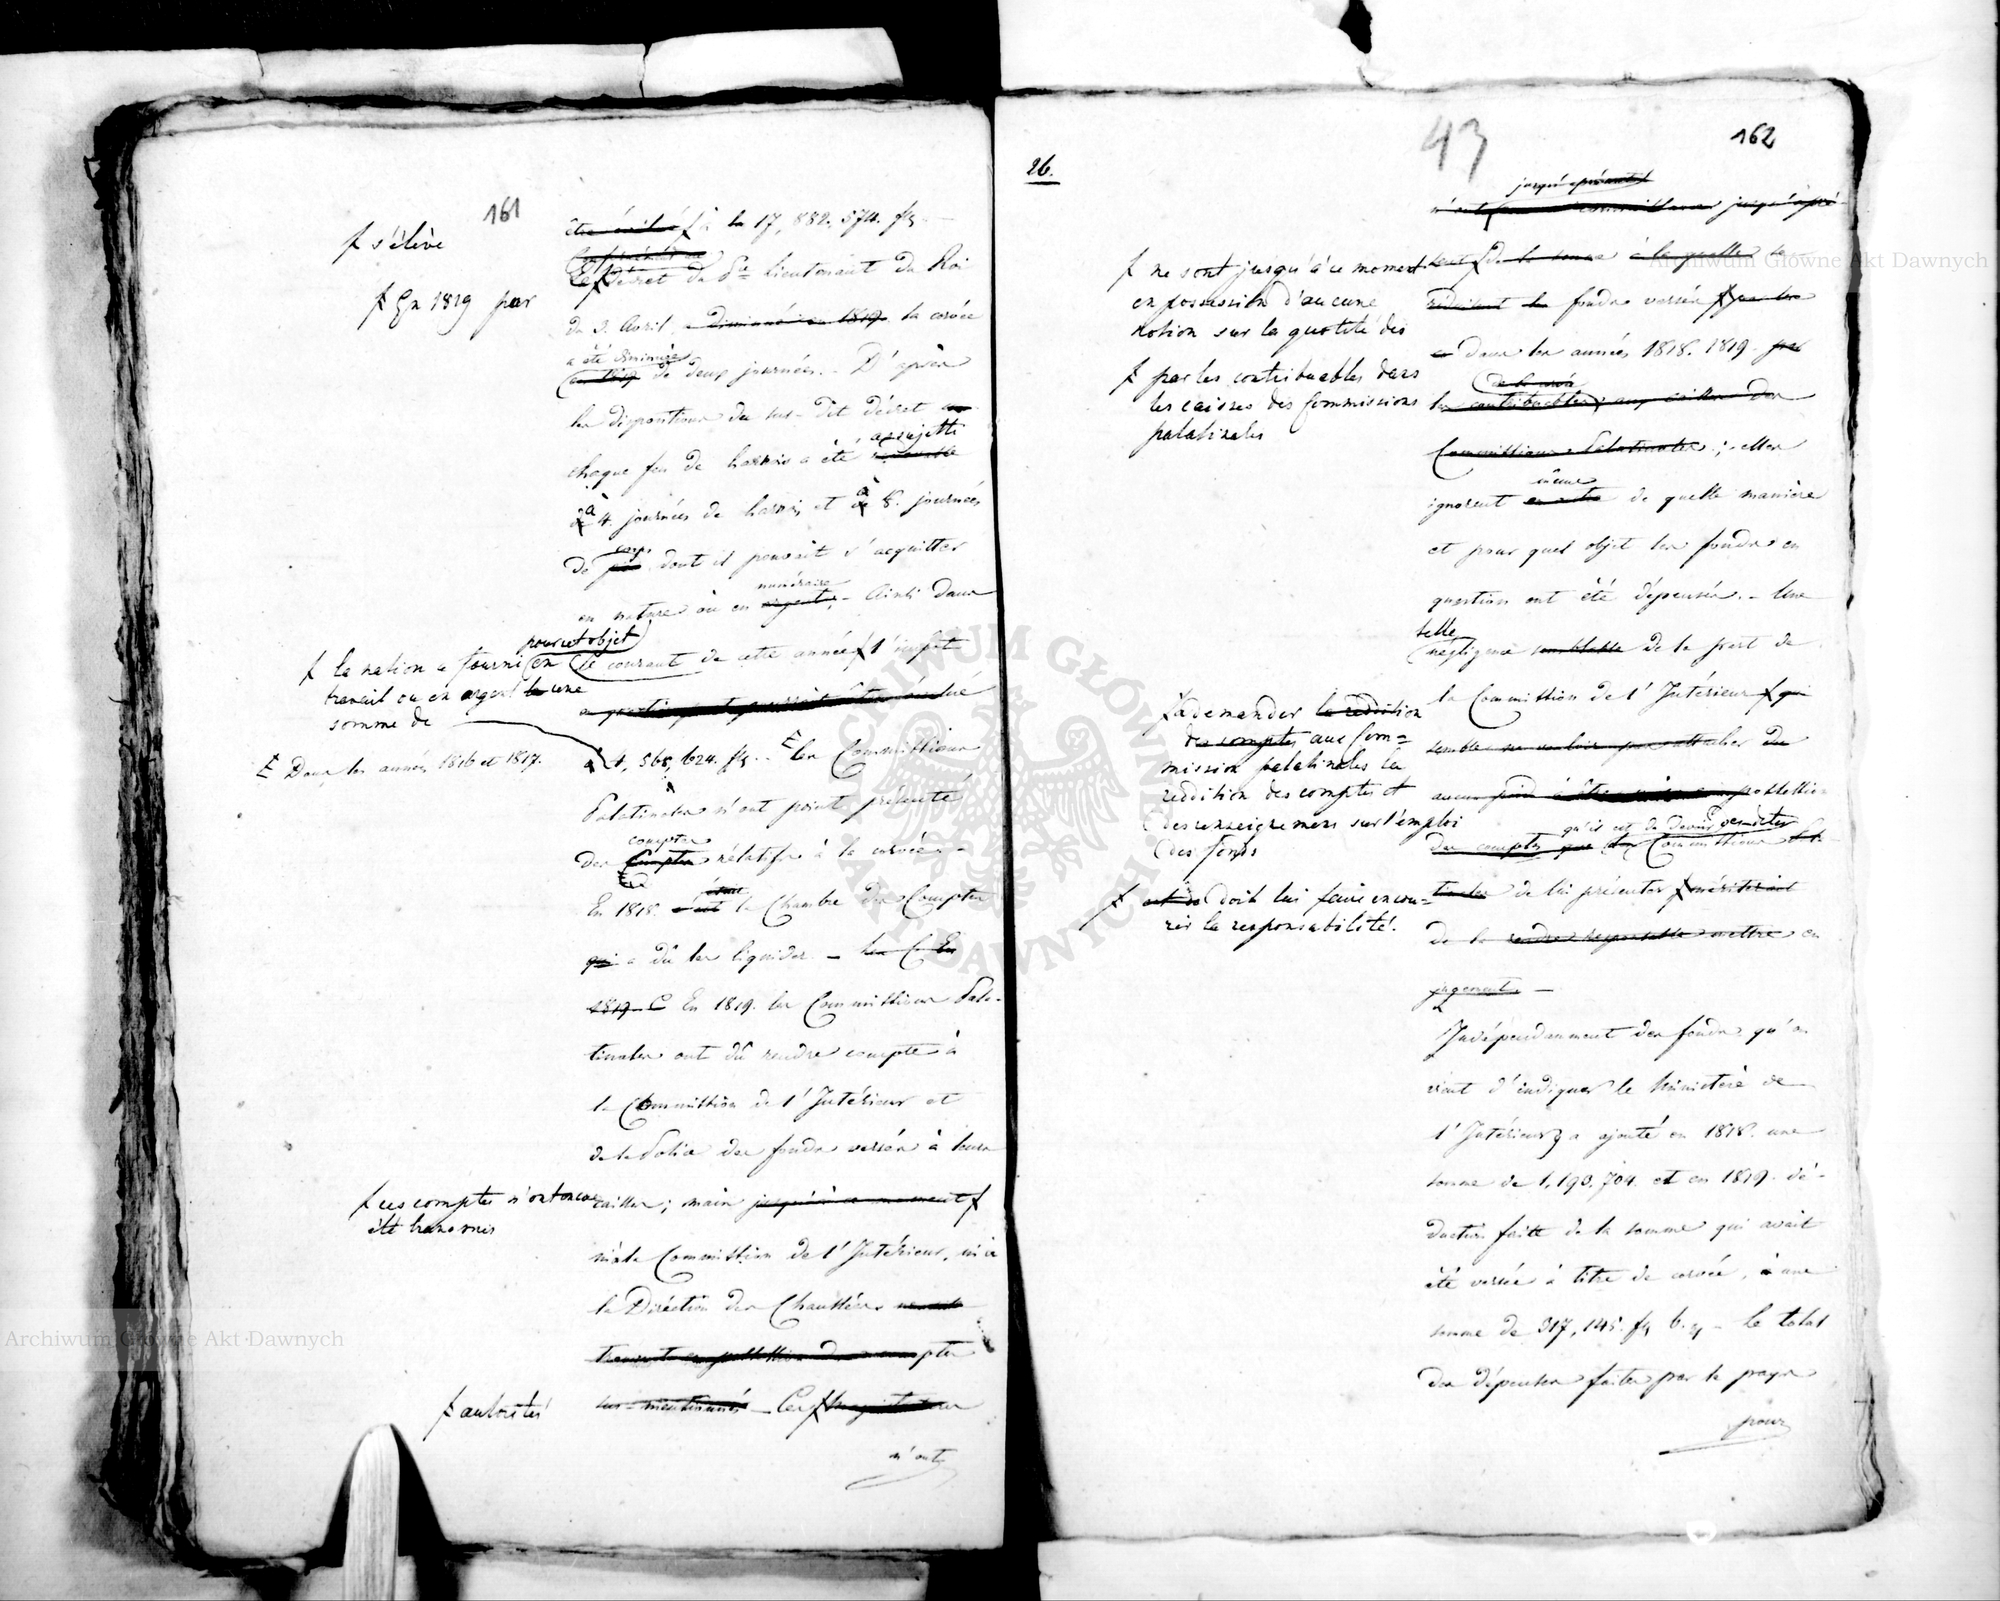 161
f s'élève
f En 1819 par
f la nation a fourni en
travail ou en argent une
somme de
E Dans les années 1816 et 1817.
f ces comptes n'ont encore
été transmis
f autorités
à la 17,882,574. fls
Le Décret du Pce Lieutenant du Roi
du 3. Avril, a diminué en 1819. la corvée
a été diminuée
en 1819 de deux journées. - D'après
les dispositions du sus-dit décret
assujetti
chaque feu de harnois a été
à 4. journées de harnois et à 8. journées
corps
de dont il pouvait s'acquitter
numéraire
en nature ou en argent; - Ainsi dans
pour cet objet
le courant de cette année f l'impôt
à 4,568,624. fls. - E les Commissions
Palatinales n'ont point présenté
comptes
des Comptes rélatifs à la corvée -
En 1818. c'est la Chambre des Comptes
qui a dû les liquider. - les C En
1819. C En 1819. les Commissions Pala-
tinales ont dû rendre compte à
la Commission de l'Intérieur et
de la Police des fonds versés à leurs
caisses; mais jusqu'à ce moment f
ni la Commission de l'Intérieur, ni à
la Direction des Chaussées
sus-mentionnés - Ces f
n'ont
26.
43
162
f ne sont jusqu'à ce moment
en possession d'aucune
notion sur la quotité des
f par les contribuables dans
les caisses des Commissions
palatinales
f à demander la reddition
des comptes aux Com=
mission palatinales la
reddition des comptes et
des renseignemens sur l'emploi
des fonds
f doit lui faire encou=
rir la responsabilité.
jusqu'à présent
jusqu'à pré-
sent f de la somme à laquelle se
réduisent les fonds versés f par les
Dans les années 1818. 1819. par
les contribuables, aux caisses des
Commissions Palatinales; elles
même
ignorent de quelle manière
et pour quel objet les fonds en
question ont été dépensés. - Une
telle
négligence semblable de la part de
la Commission de l'Intérieur f qui
semble ne vouloir pas attacher du
possession
qu'il est de devoir
des comptes que des Commissions Pala-
tinales de lui présenter f mériterait
de la rendre responsable mettre en
jugement. -
Indépendamment des fonds qu'on
vient d'indiquer le Ministère de
l'Intérieur y a ajouté en 1818. une
somme de 1,190,704. et en 1819. dé-
duction faite de la somme qui avait
été versée à titre de corvée, à une
somme de 317,145. fls 6. g - Le total
des dépenses faites par le pays
pour
Archiwum Główne Akt Dawnych
Archiwum Główne Akt Dawnych
ARCHIWUM GŁÓWNE AKT DAWNYCH